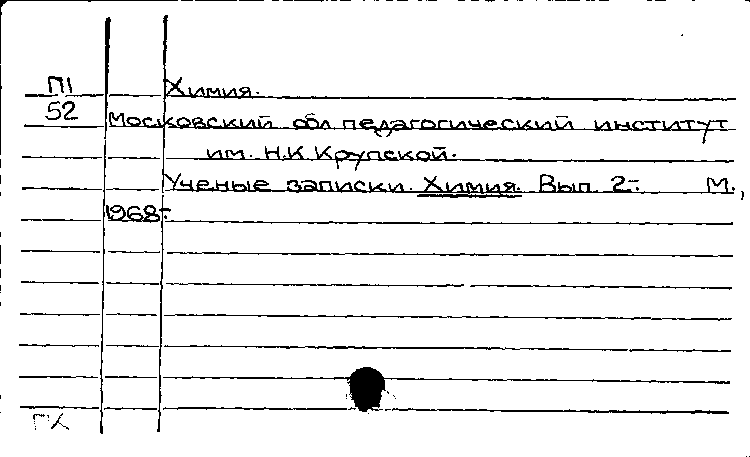 П1 Химия.
52
Московский обл педагогический институт
им. Н.К Крупской.
Ученые записки. Химия. Вып. 2-. М.,
1968-.
ГХ